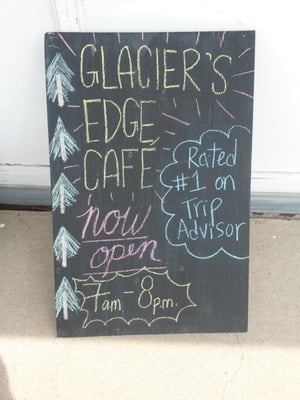 GLACIER'S
EDGE
CAFÉ
now
open
7am 8p.m.
Rated
#1 on
Trip
Advisor